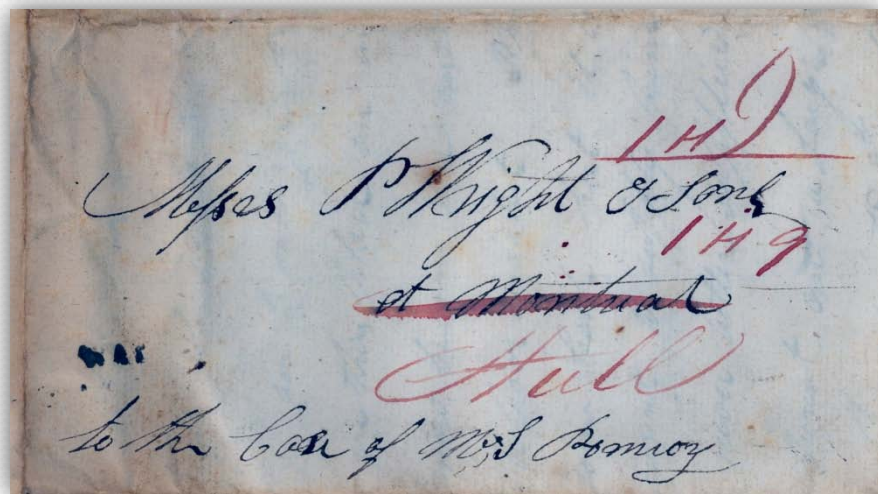 1 H
Messes P Wright & Sons
1 H 9
at Montreal
Hull
to the Care of Mr S Pomroy